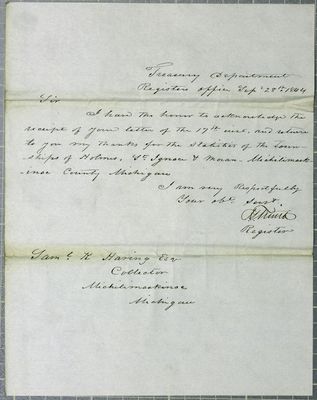 Treasury Department
Registers office Sep. 28th 1844
Sir
I have the honor to acknowledge the
receipt of your letter of the 17th inst. and return
to you my thanks for the Statistics of the town-
ships of Holmes, St Ignace & Moran. Michilimack-
inac County Michigan
I am very Respectfully
Your obt. Servt.
Register
Saml. K Haring Esq
Collector
Michilimackinac
Michigan